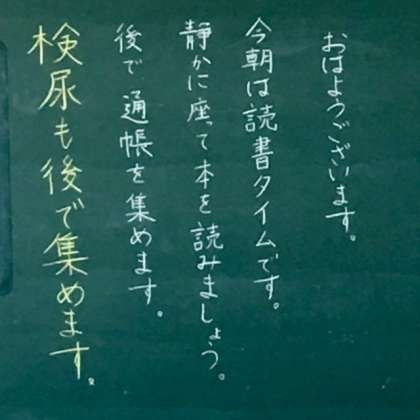 おはようございます。
今朝は読書タイムです。
静かに座って本を読みましょう。
後で通帳を集めます。
検尿も後で集めます。